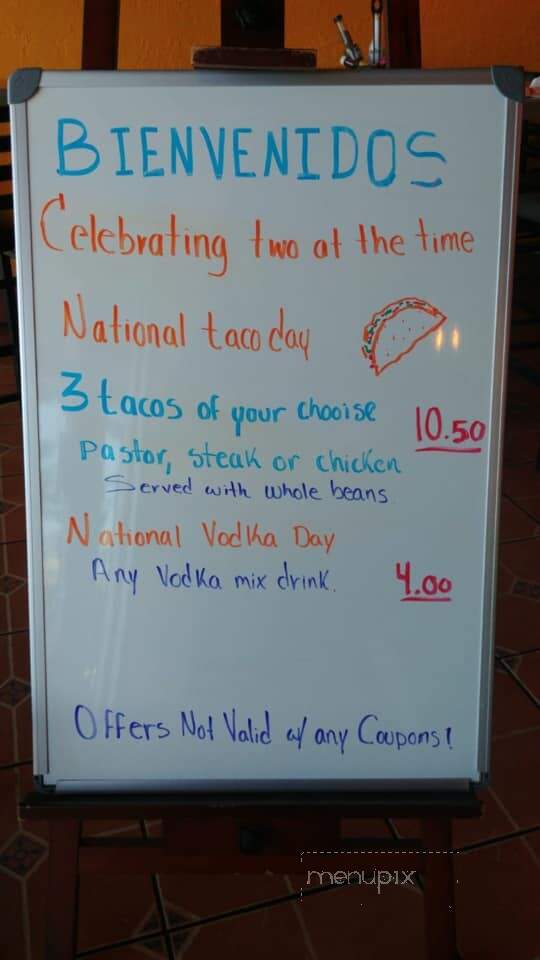 BIENVENIDOS
Celebrating two at the time
National taco day
3 tacos of your chooise
10.50
Pastor, steak or chicken
Served with whole beans
National Vodka Day
Any Vodka mix drink.
4.00
Offers Not Valid w/ any Coupons!
menupix